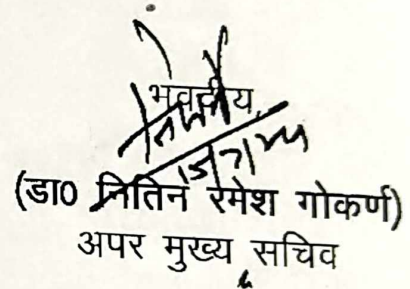 भवदीय,
(डा0 नितिन रमेश गोकर्ण)
अपर मुख्य सचिव